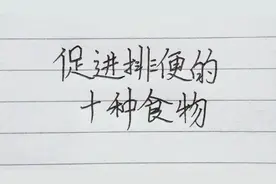 促进排便的
十种食物